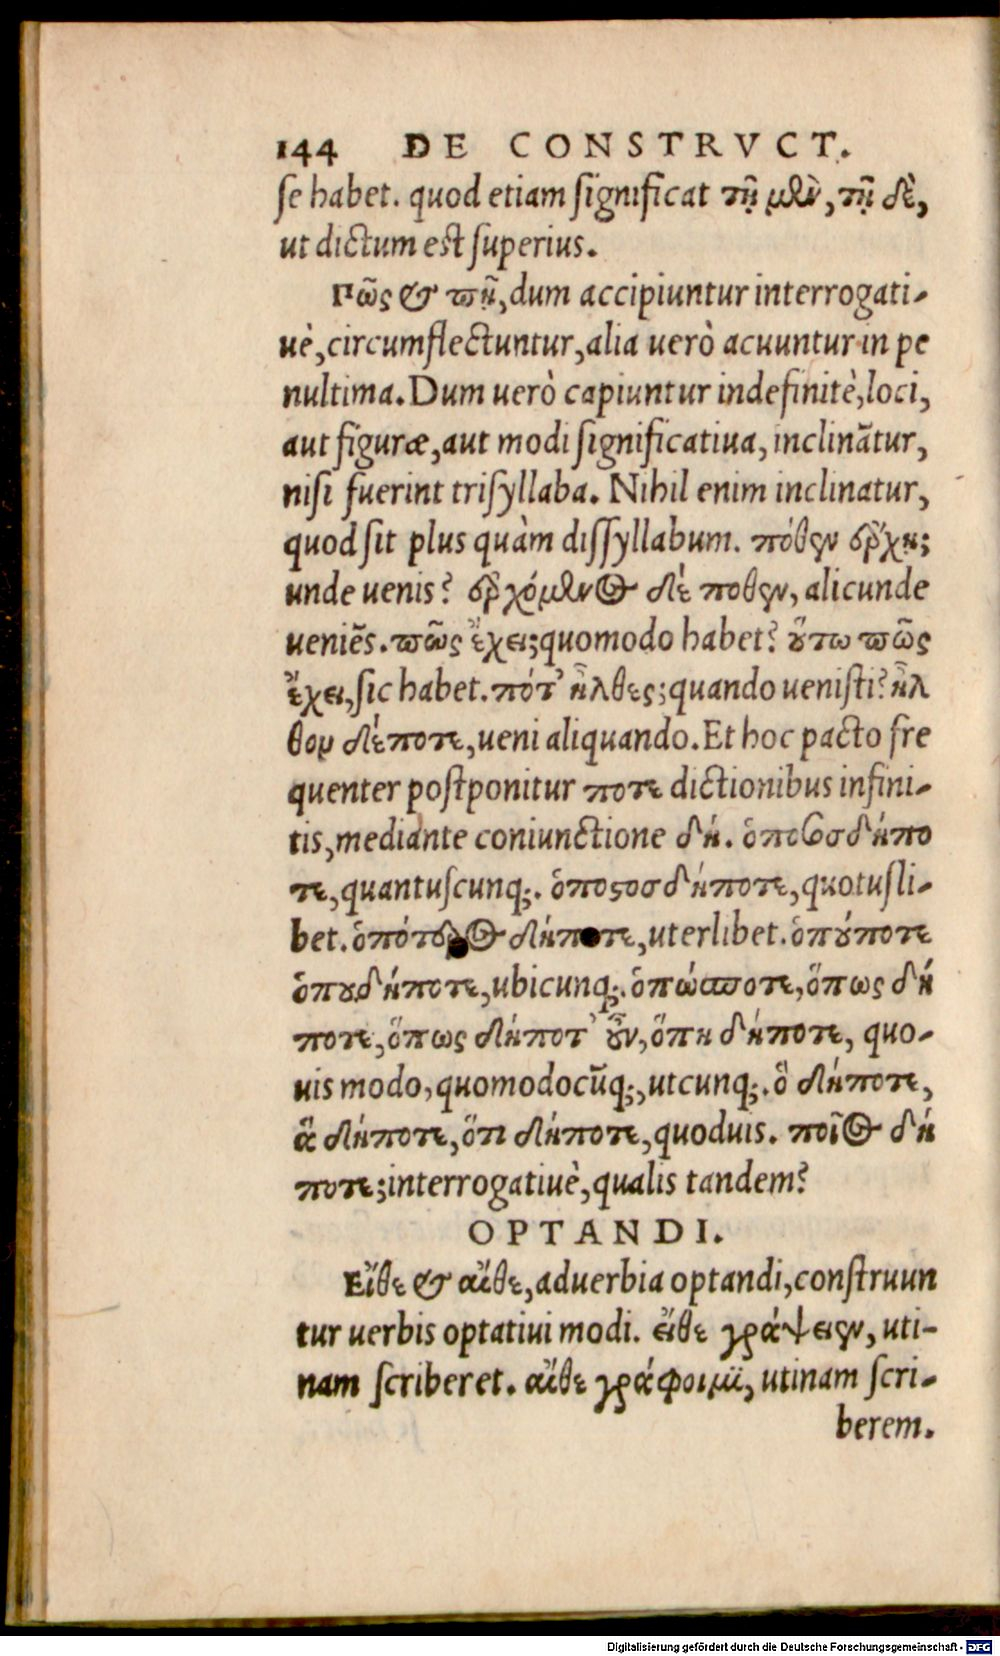 144 DE CONSTRVCT.
se habet. quod etiam significat τῇ μὲν, τῇ δὲ,
ut dictum est superius.
Πῶς & πῇ, dum accipiuntur interrogati-
uè, circumflectuntur, alia uerò acuuntur in pe
nultima. Dum uerò capiuntur indefinitè, loci,
aut figuræ, aut modi significatiua, inclinãtur,
nisi fuerint trisyllaba. Nihil enim inclinatur,
quod sit plus quàm dissyllabum. πόθεν ἔρχῃ;
unde uenis? ἐρχόμενος δὲ ποθεν, alicunde
ueniẽs. πῶς ἔχει; quomodo habet? οὕτω πῶς
ἔχει, sic habet. πότ' ἦλθες; quando uenisti? ἦλ
θον δέποτε, ueni aliquando. Et hoc pacto fre
quenter postponitur ποτε dictionibus infini-
tis, mediante coniunctione δή. ὁποσοσδήπο
τε, quantuscunq;. ὁποστοσδήποτε, quotusli-
bet. ὁπότερος δήποτε, uterlibet. ὁπούποτε
ὁπουδήποτε, ubicunq;. ὁπώσποτε, ὅπως δή
ποτε, ὅπως δήποτ' οὖν, ὅπη δήποτε, quo-
uis modo, quomodocũq;, utcunq;. ὃ δήποτε,
ἃ δήποτε, ὅτι δήποτε, quoduis. ποῖος δή
ποτε; interrogatiuè, qualis tandem?
OPTANDI.
Εἴθε & αἴθε, aduerbia optandi, construun
tur uerbis optatiui modi. εἴθε γράψειεν, uti-
nam scriberet. αἴθε γράφοιμι, utinam scri-
berem.
Digitalisierung gefördert durch die Deutsche Forschungsgemeinschaft - DFG